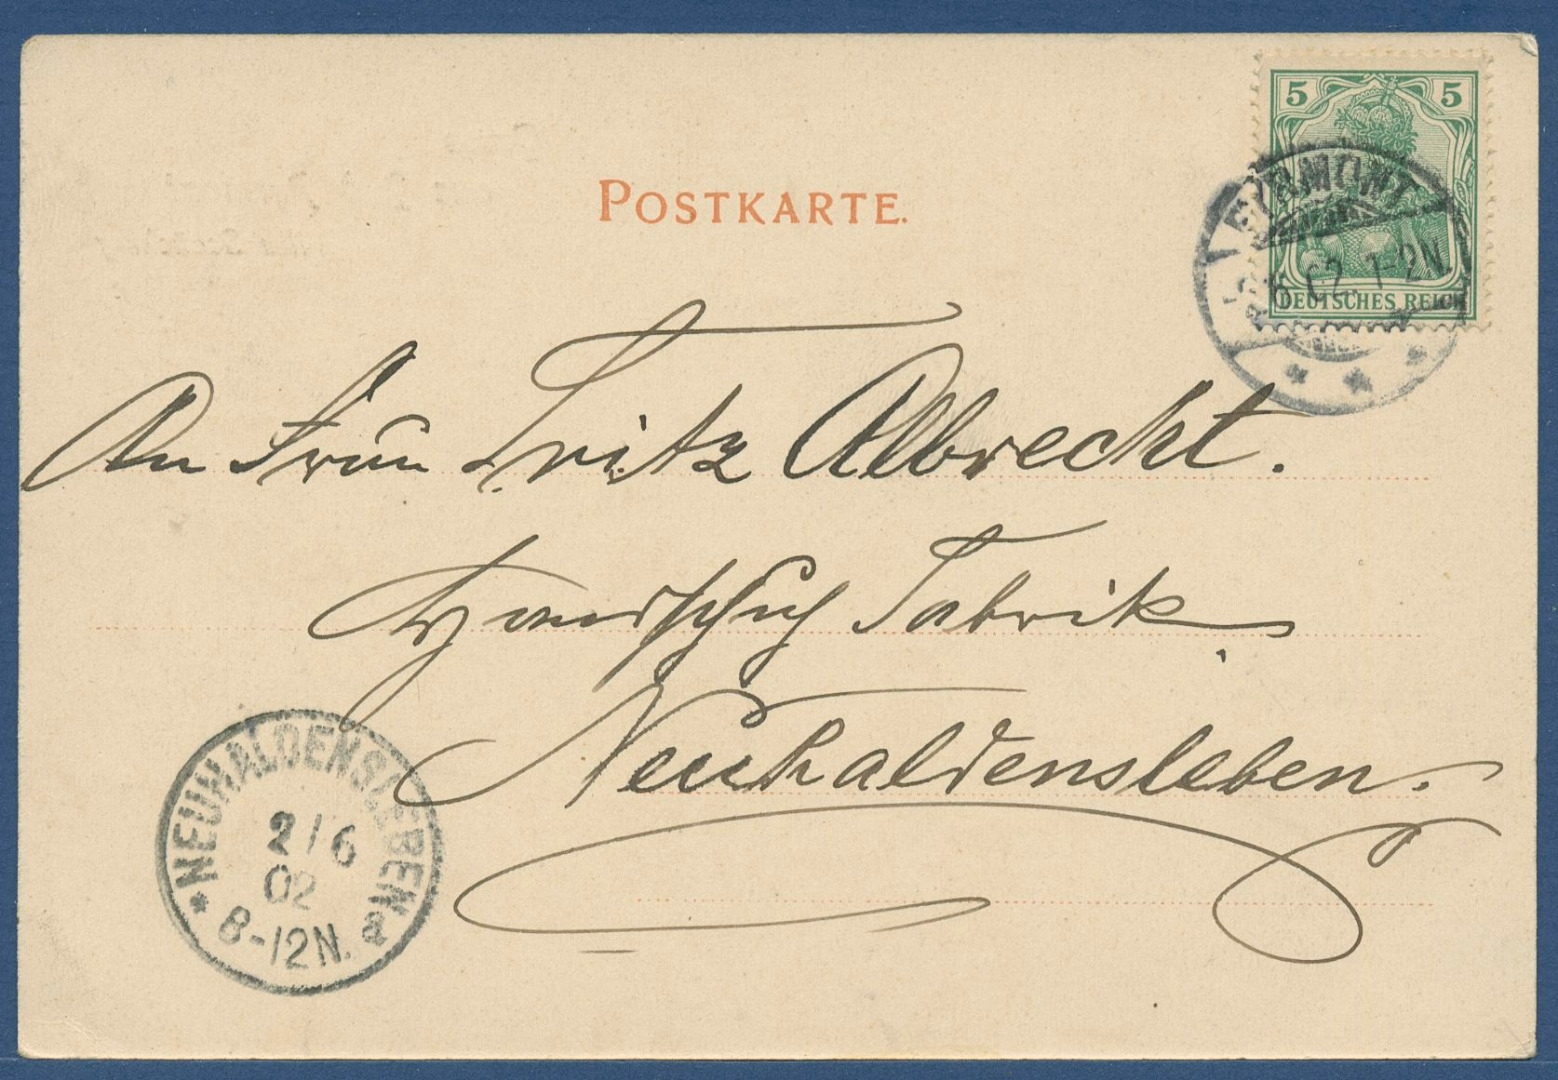 POSTKARTE.
5 5
PYRMONT
6.02. 1-2N.
DEUTSCHES REICH
An Frau Fritz Albrecht.
Handschuh Fabrik
Neuhaldensleben.
* NEUHALDENSLEBEN a
2/6
02
8-12N.